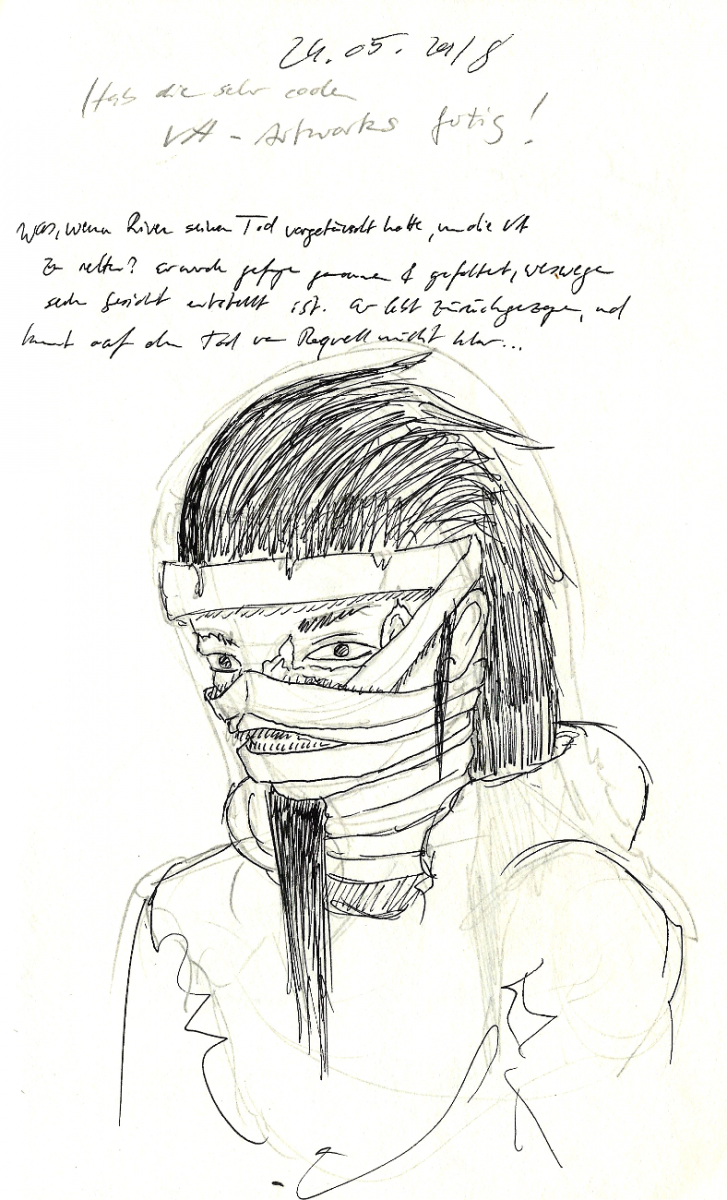 24.05.2018
Hab die sehr coolen
VA-Artworks fertig!
Was, wenn River seinen Tod vorgetäuscht hatte, um die VA
zu retten? er wurde gefangen genommen & gefoltert, weswegen
sein Gesicht entstellt ist. er lebt zurückgezogen, und
kommt auf den Tod von Requell nicht klar...